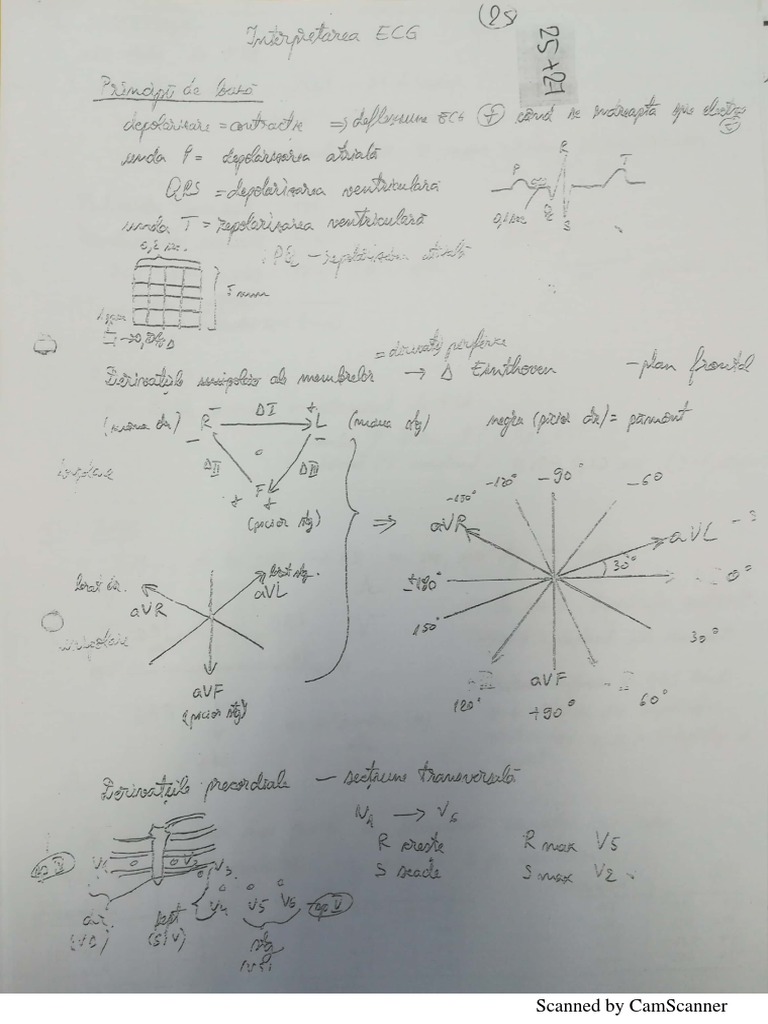 25
Interpretarea ECG
25+27
Principii de bază
depolarizare = contracție => deflexiune ECG + când se îndreaptă spre electrod
unda P = depolarizarea atrială
QRS = depolarizarea ventriculară
unda T = repolarizarea ventriculară
P R T
0,1 sec Q S
0,2 sec.
repolarizarea atrială
5 mm
= derivații periferice
Derivațiile ale membrelor → Δ Einthoven - plan frontal
(mâna dr) R - ΔI + L (mâna stg) negru (picior dr) = pământ
- -
bipolare ΔII ΔIII
F
+ +
(picior stg)
=>
-150° -120° -90° -60
aVR aVL
30°
±180° 0°
150° 30°
aVF
120° +90° 60°
braț dr. braț stg.
aVR aVL
unipolare
aVF
(picior stg)
Derivațiile precordiale - secțiune transversală
V1 → V6
R crește R max V5
S scade S max V2
V1 V2 V3
V4 V5 V6 sp V
dr. sept stg
(VD) (SIV) (VS)